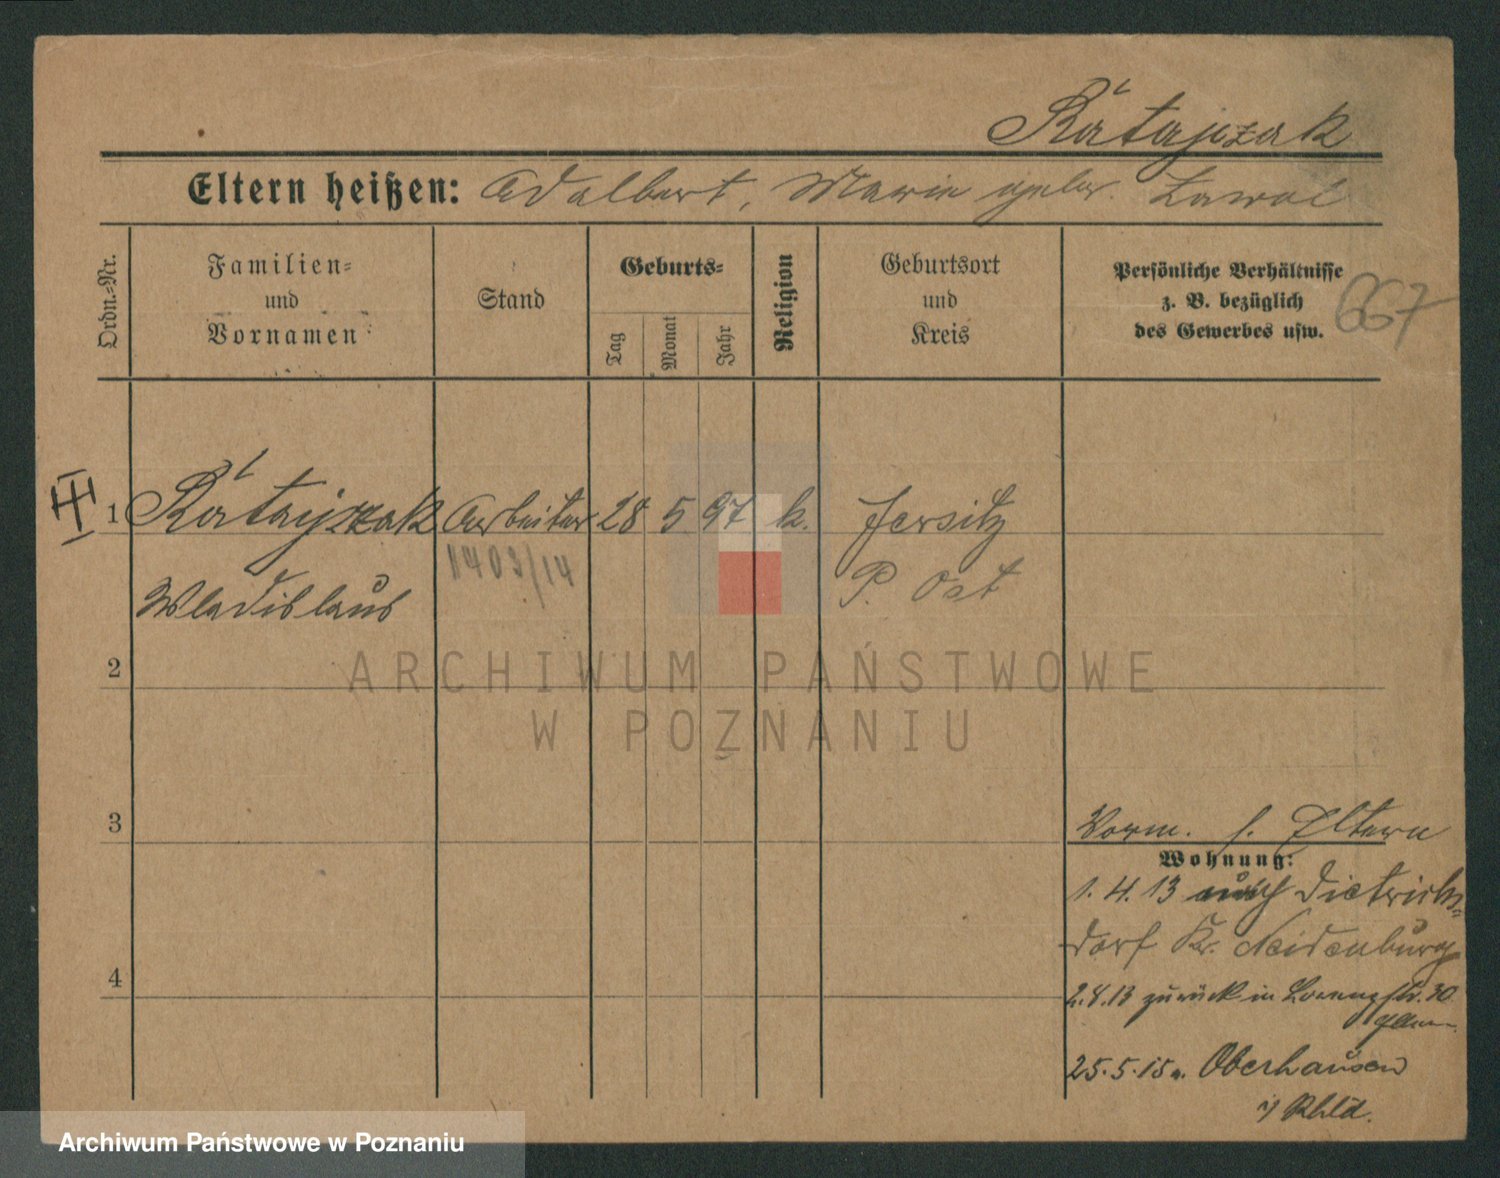 Ratajczak
Eltern heißen: Adalbert, Marie geb.
Ordn.-Nr.
Familien-
und
Vornamen
Stand
Geburts-
Tag
Monat
Jahr
Religion
Geburtsort
und
Kreis
Persönliche Verhältnisse
z. B. bezüglich
des Gewerbes usw.
667
1 Ratajczak Arbeiter 28 5 97 k. Jersitz
1403/14
Wladislaus P. Ost
2
ARCHIWUM PAŃSTWOWE
W POZNANIU
3
Vorm. s. Eltern
Wohnung:
1. 4. 13 nach Dietrichs-
dorf Kr. Neidenburg
4
2.8.13 zurück in str. 30
Eltern
25.5.15 n. Oberhausen
i/ Rhld.
Archiwum Państwowe w Poznaniu